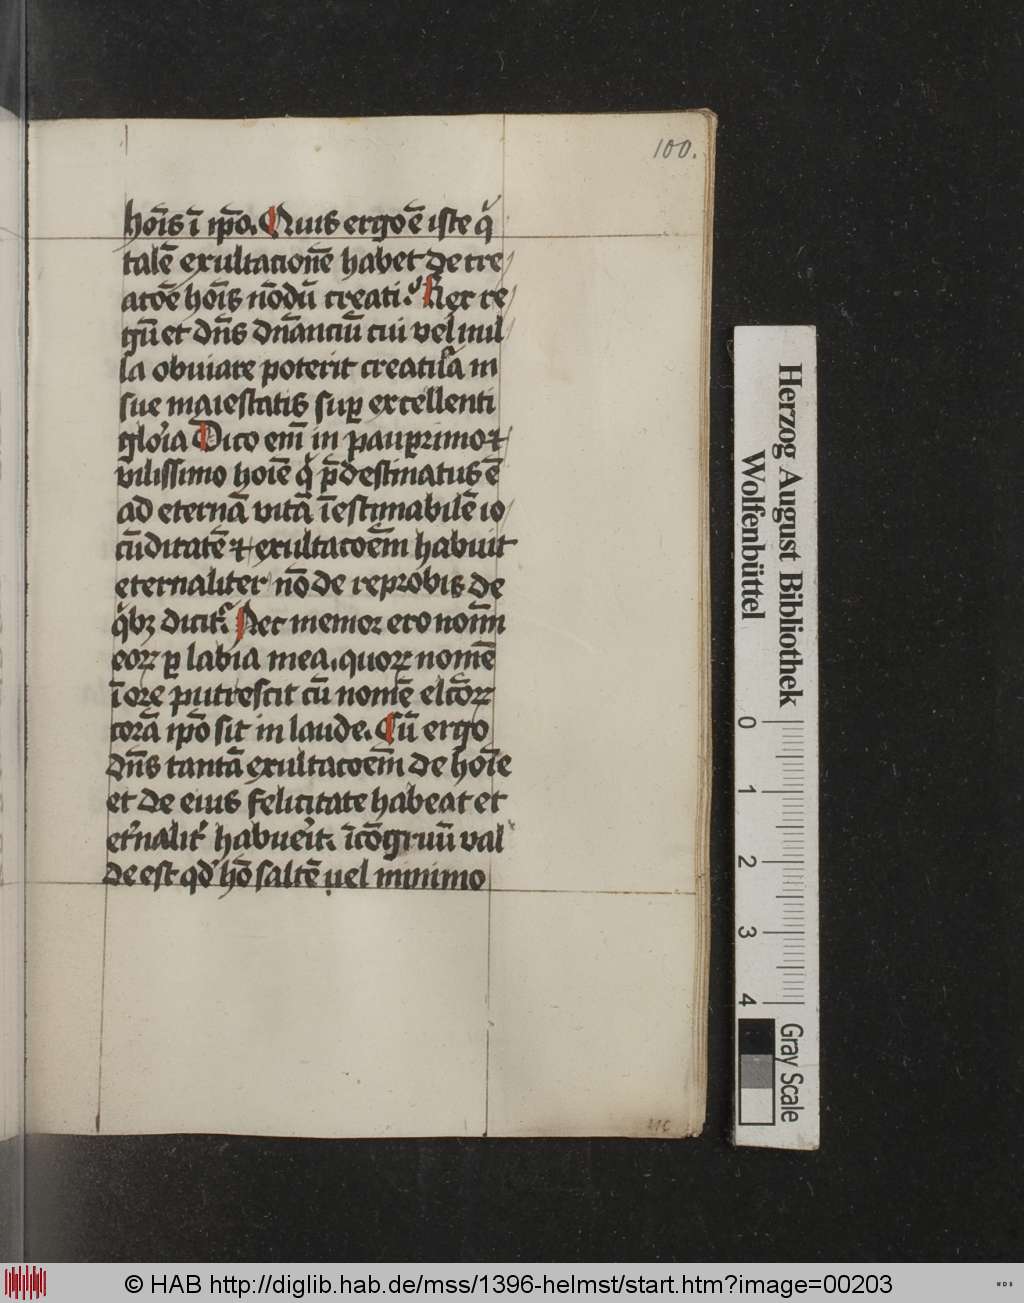 100.
hoīs ī ip̄o. Quis ergo ē iste q̇
talē exultacionē habet de cre
atōe hoīs nōdū creati. Nec re
gū et dn̄s dn̄anciū cui vel nul
la obuiare poterit creatur̄a in
sue maiestatis suꝑ excellenti
glor̄ia Dico em̄ in pauꝑrimo et
vilissimo hoīe q̇ p̄destinatus ē
ad eternā vitā īestimabilē io
cūditatē et exultacoēm habuit
eternaliter nō de reprobis de
q̇bꝫ dicit᷑. Nec memor ero noīm
eoꝝ ꝑ labia mea. quoꝝ nomē
ī ore putrescit cū nomē elc̄oꝝ
corā ip̄o sit in laude. Cū ergo
dn̄s tantā exultacoēm de hoīe
et de eius felicitate habeat et
et̓nalit̓ habuer̄it. īcōgruū val
de est qd̓ hō saltē uel minimo
Herzog August Bibliothek
Wolfenbüttel
0 1 2 3 4
Gray Scale
© HAB http://diglib.hab.de/mss/1396-helmst/start.htm?image=00203